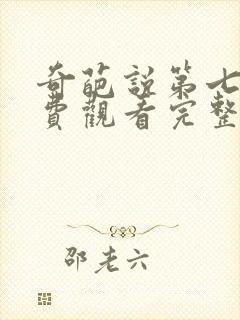 奇葩説第七
費觀看完整
邵老六